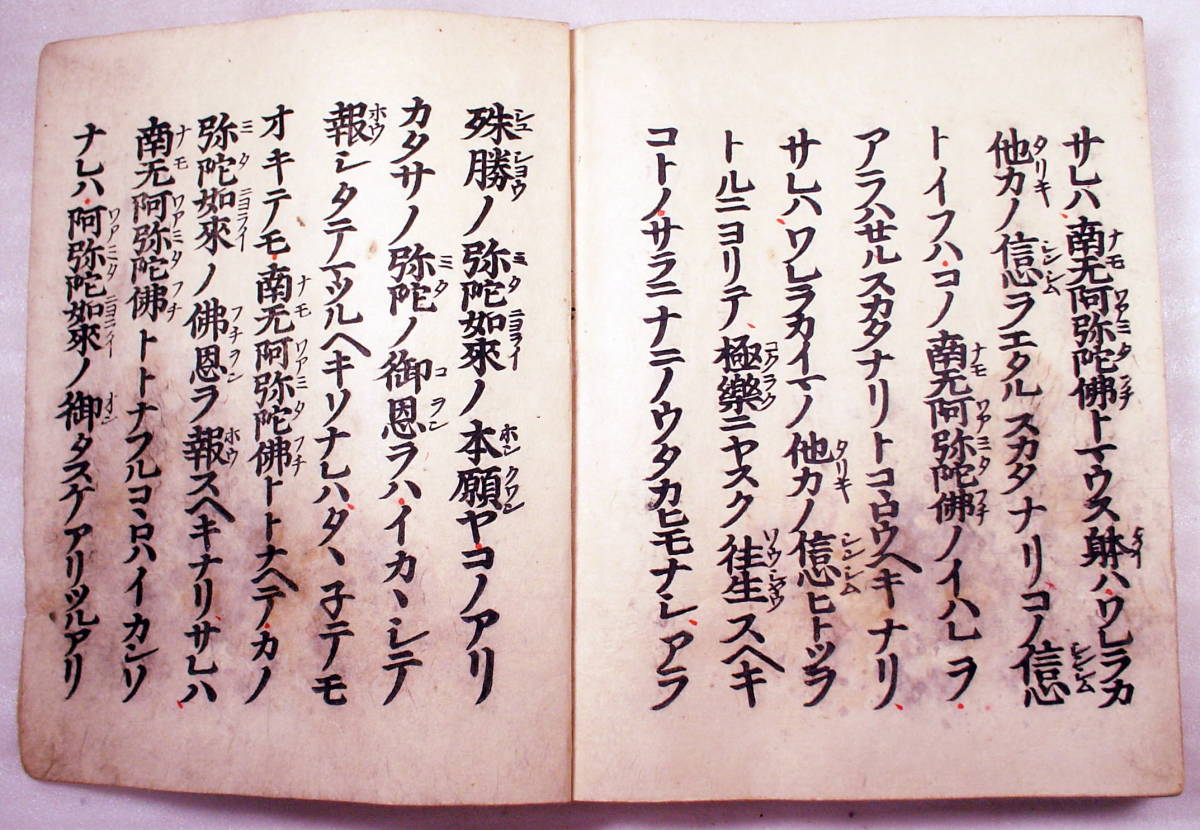 サレハ南无阿弥陀佛トマウス躰ハワレラカ
他力ノ信心ヲエタルスカタナリコノ信心
トイフハコノ南无阿弥陀佛ノイハレヲ
アラハセルスカタナリトコヽロウヘキナリ
サレハワレラカイマノ他力ノ信心ヒトツヲ
トルニヨリテ極樂ニヤスク往生スヘキ
コトノサラニナニノウタカヒモナシアラ
殊勝ノ弥陀如來ノ本願ヤコノアリ
カタサノ弥陀ノ御恩ヲハイカヽシテ
報シタテマツルヘキソナレハタヽ子テモ
オキテモ南无阿弥陀佛トトナヘテカノ
弥陀如來ノ佛恩ヲ報スヘキナリサレハ
南无阿弥陀佛トトナフルコヽロハイカンソ
ナレハ阿弥陀如來ノ御タスケアリツルアリ